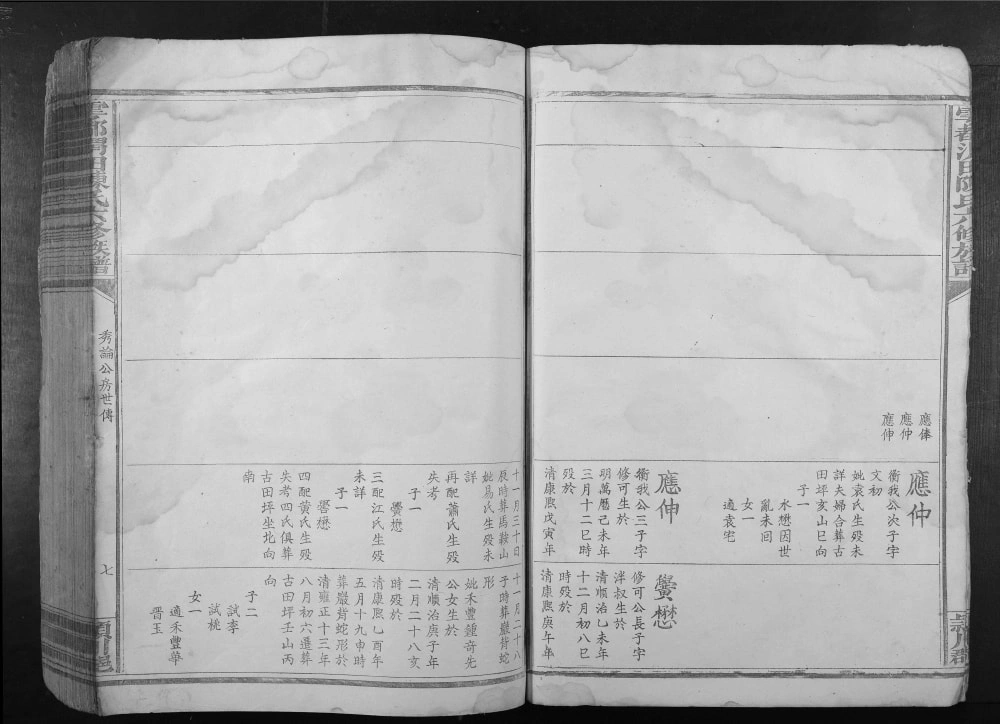 應俸
應仲
應伸
應仲
衛我公次子字
文初
妣袁氏生殁未
詳夫婦合葬古
田坪亥山巳向
子一
水懋因世
亂未回
女一
適袁宅
應伸
衛我公三子字
修可生於
明萬曆己未年
三月十二巳時
殁於
清康熙戊寅年
十一月三十日
辰時葬馬鞍山
妣易氏生殁未
詳
再配蕭氏生殁
失考
子一
黌懋
三配江氏生殁
未詳
子一
嚳懋
四配黄氏生殁
失考四氏俱葬
古田坪坐北向
南
黌懋
修可公長子字
泮叔生於
清順治乙未年
十二月初八巳
時殁於
清康熙庚午年
十一月二十八
子時葬巖背蛇
形
妣禾豐鍾奇先
公女生於
清順治庚子年
二月二十八亥
時殁於
清康熙乙酉年
五月十九申時
葬巖背蛇形於
清雍正十三年
八月初六遷葬
古田坪壬山丙
向
子二
試李
試桃
女一
適禾豐華
晋玉
秀論公房世傳
七